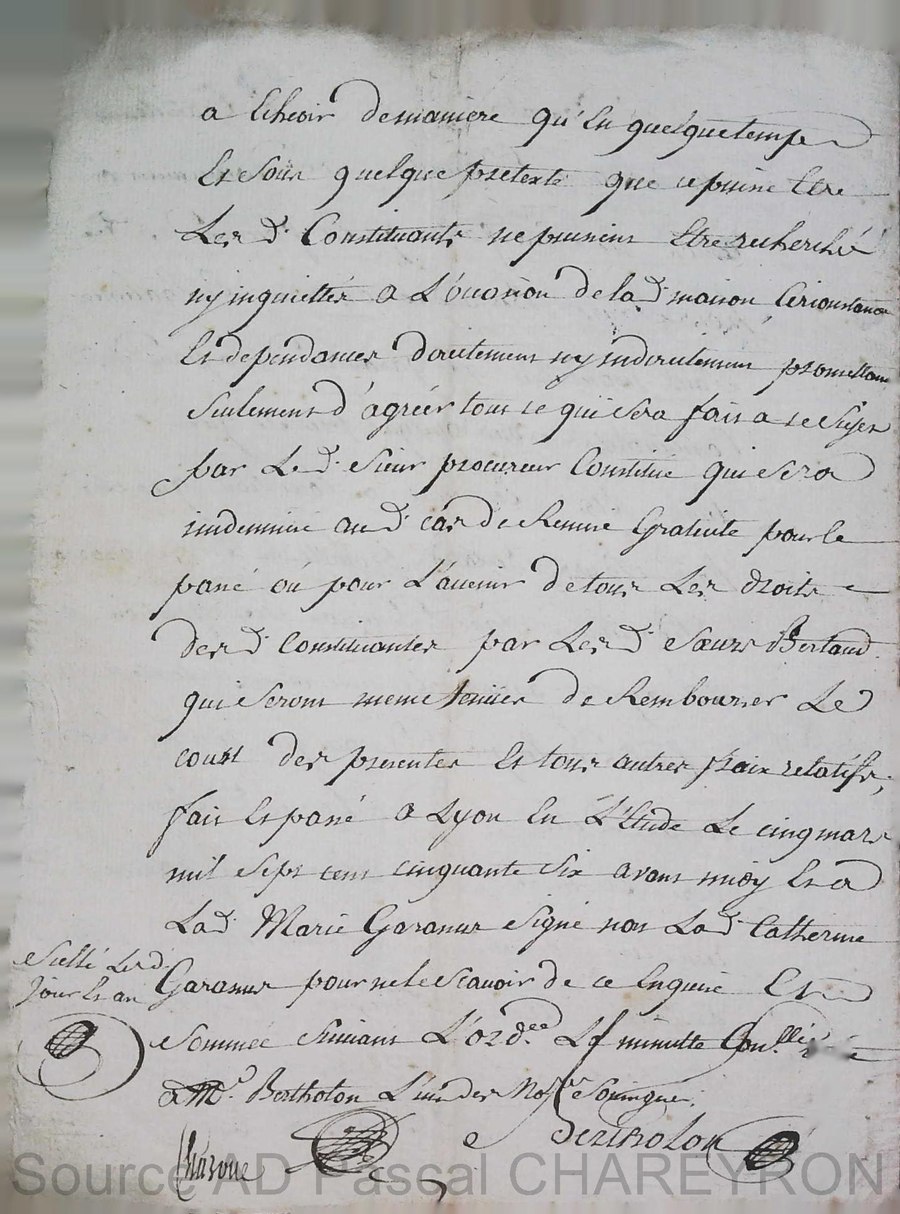 a Echeoir de maniere qu'En quelque temps
Et Sous quelque pretexte que ce puisse Etre
Les d. Constituants ne puissent Etre recherché
ny inquiettés a L'ocasion de la d. maison Circonstances
Et dependances directement ny indirectement promettant
Seulement d'agréer tous ce qui Sera fait a ce Sujet
par Le d. Sieur procureur Constitué qui Sera
indemnisé au d. cas de Remise Gratuite pour le
passé ou pour L'avenir de tous Les droits
des d. Constituantes par Les d. Sœurs Bertaud
qui Seront meme tenües de Rembourser Le
coust des presentes Et tous autres fraix relatifs,
fait Et passé a Lyon En L'Etude Le cinq mars
mil Sept cent cinquante Six avant midy Et a
La d. Marie Garanus Signé non La d. Catherine
Garanus pour ne le Scavoir de ce Enquise Et
Scellé Les d.
Jour Et an
Sommée Suivant L'ord.ce La minutte
a Me. Bertholon L'un des No.res Soussignés.
Bertholon
Source AD Pascal CHAREYRON